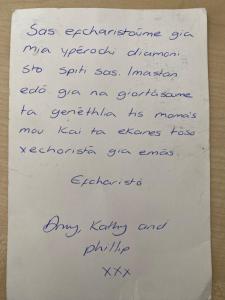 Sas efcharistoúme gia
mja ypérochi diamoní
sto spíti sas. Ímastan
edó gia na giortásoume
ta genéthlia tis mamás
mou kai ta ekanes tóso
xechoristá gia emás.
Efcharistó
Amy, Kathy and
phillip
xxx